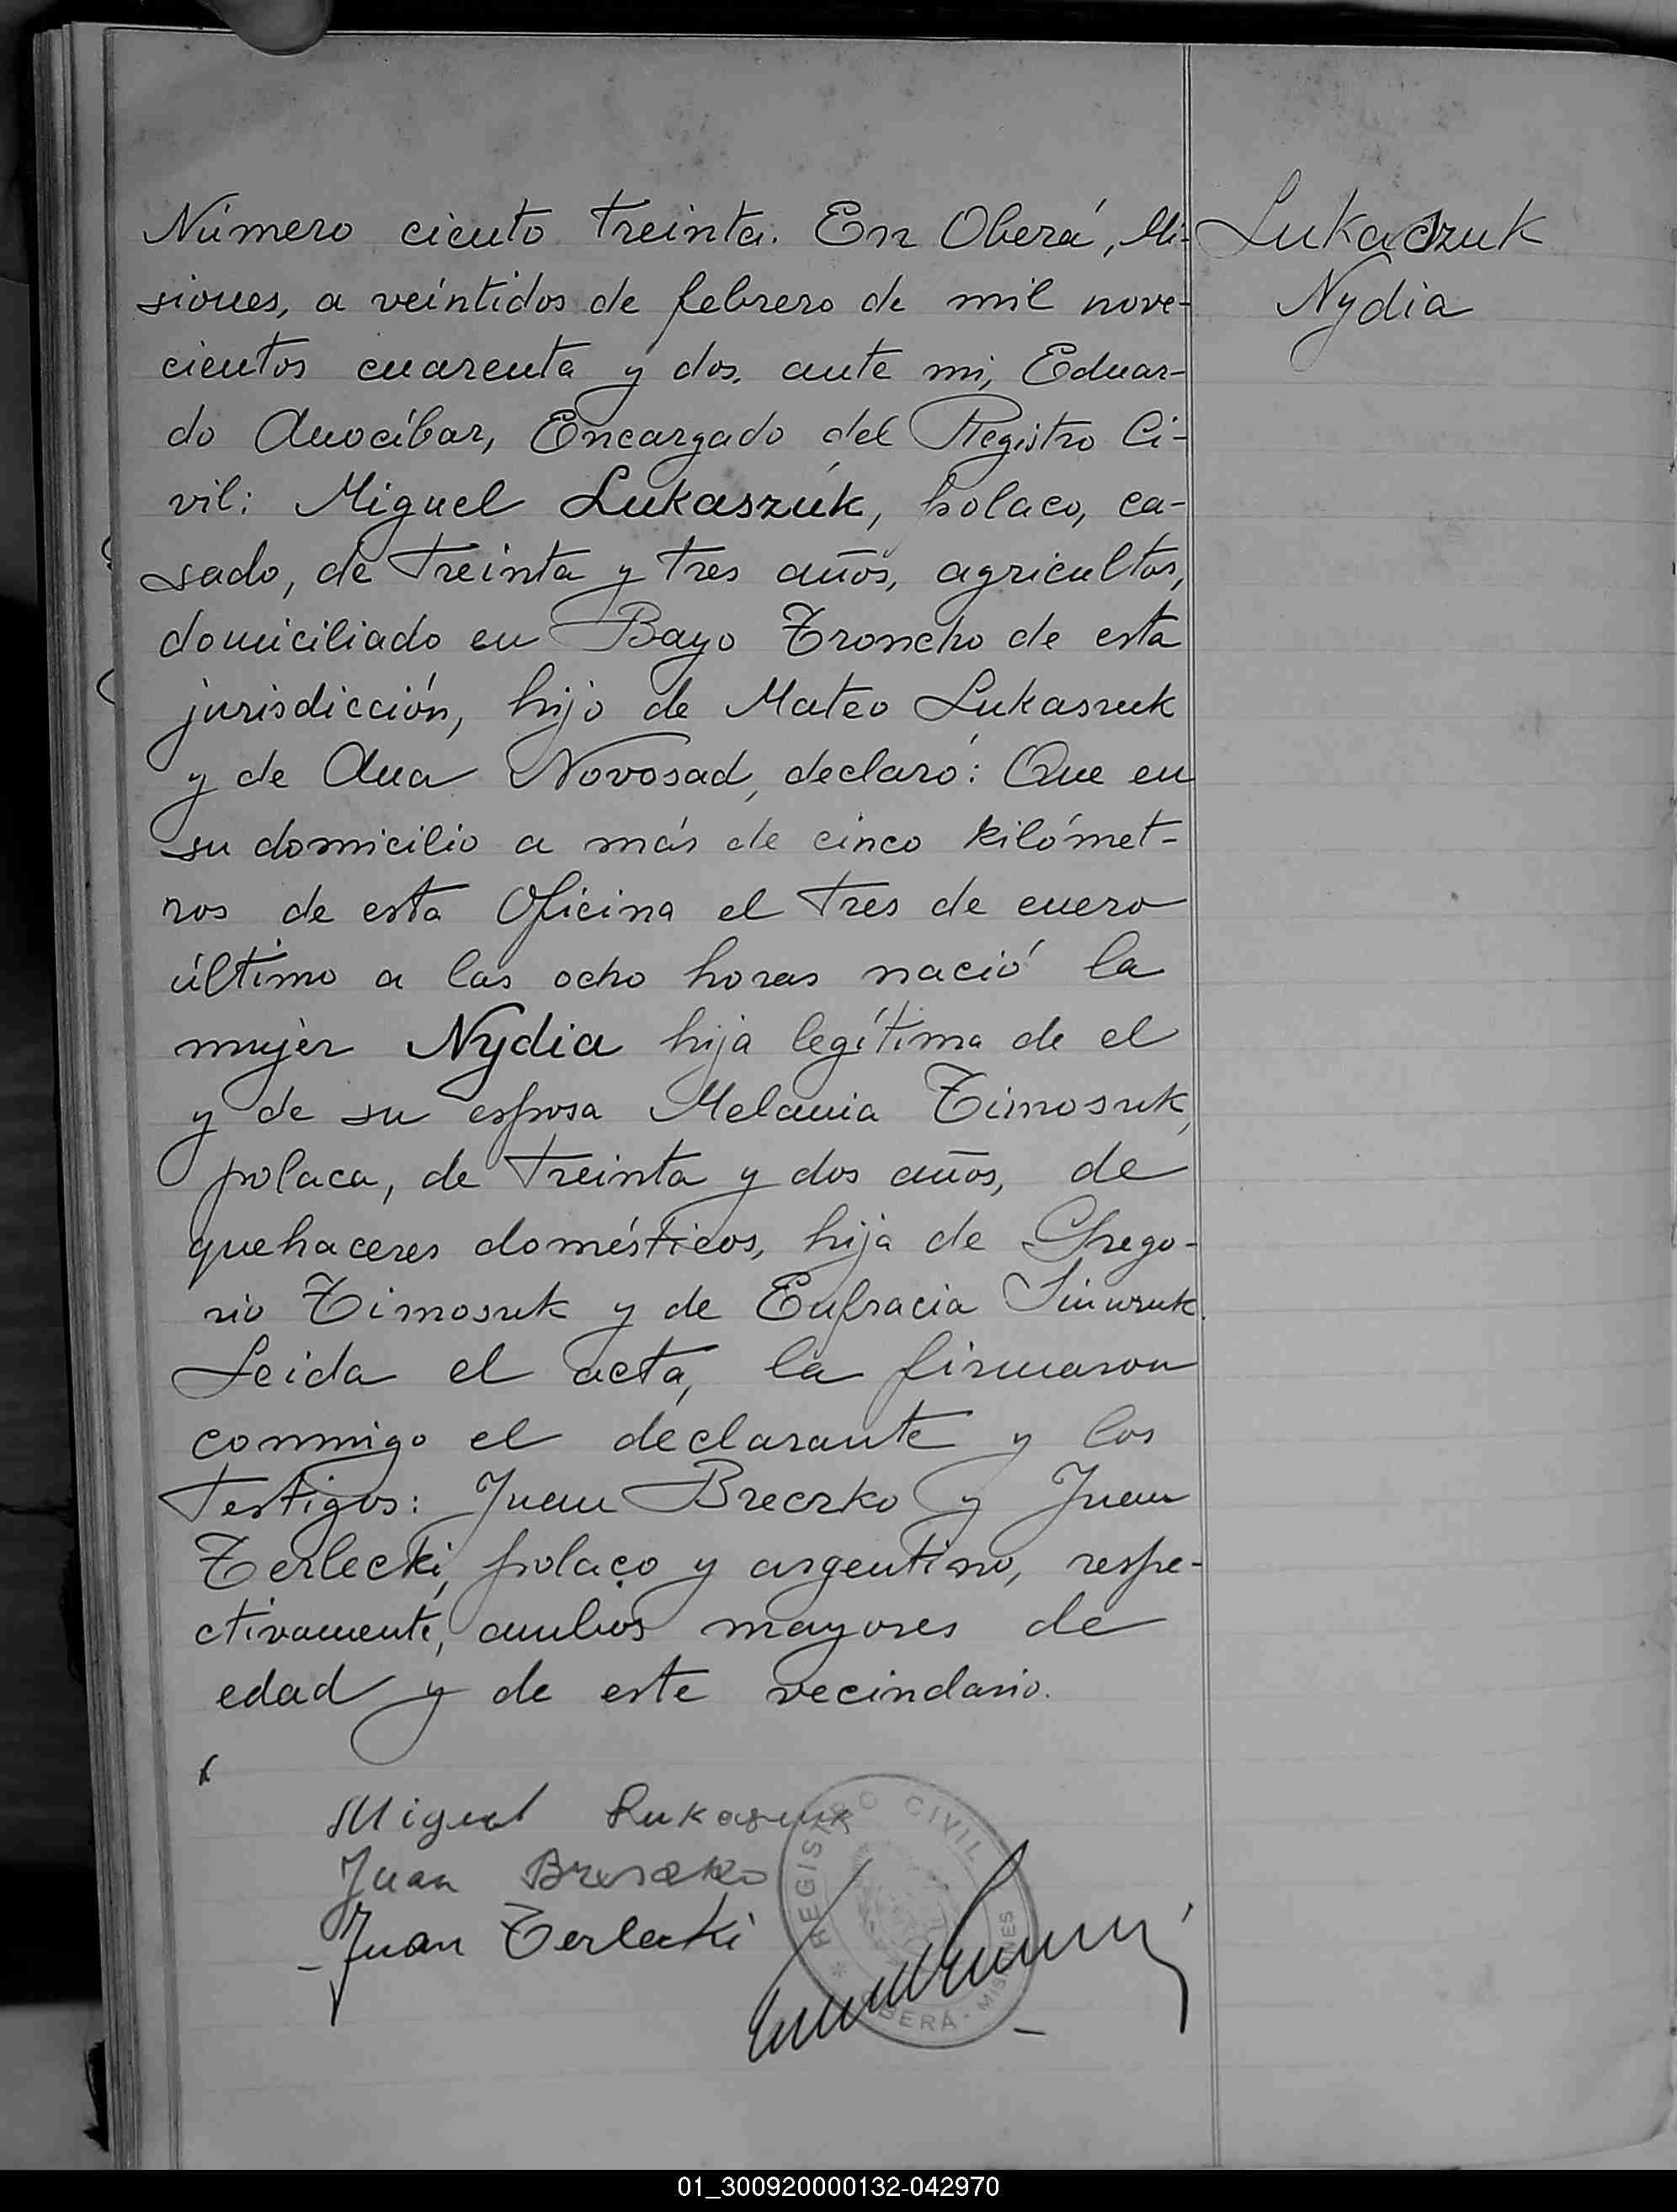 Número ciento treinta. En Oberá, Mi-
siones, a veintidos de febrero de mil nove-
cientos cuarenta y dos, ante mi, Eduar-
do Anocíbar, Encargado del Registro Ci-
vil: Miguel Lukaszuk, polaco, ca-
sado, de treinta y tres años, agricultor,
domiciliado en Bayo Troncho de esta
jurisdicción, hijo de Mateo Lukaszuk
y de Ana Novosad, declaró: Que en
su domicilio a más de cinco kilómet-
ros de esta Oficina el tres de enero
último a las ocho horas nació la
mujer Nydia hija legítima de el
y de su esposa Melania Timosuk,
polaca, de treinta y dos años, de
quehaceres domésticos, hija de Grego-
rio Timosuk y de Eufracia
Leida el acta, la firmaron
conmigo el declarante y los
testigos: Juan Breczko y Juan
Terlecki, polaco y argentino, respe-
ctivamente, ambos mayores de
edad y de este vecindario.
Lukaszuk
Nydia
Miguel Lukaszuk
Juan Breszko
Juan Terlecki
REGISTRO CIVIL
* OBERÁ - MISIONES
01_300920000132-042970